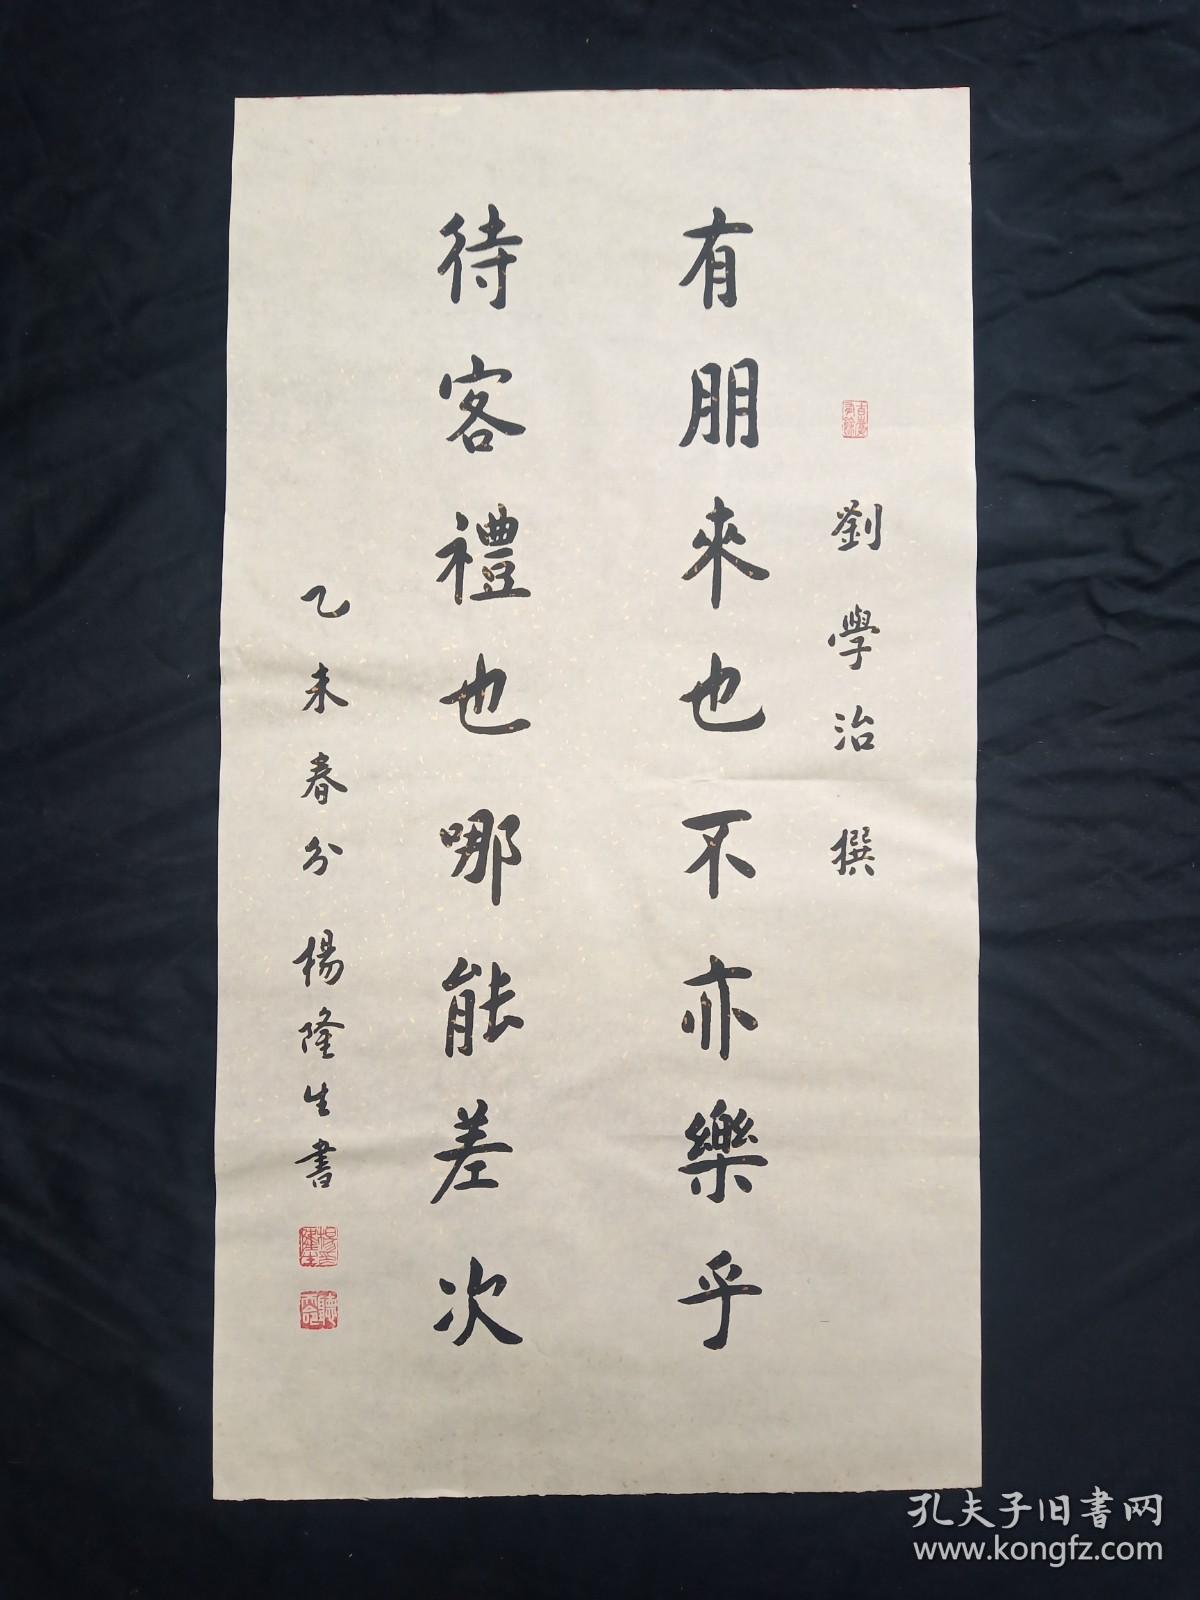 劉學治撰
有朋來也不亦樂乎
待客禮也哪能差次
乙未春分楊隆生書
孔夫子旧书网
www.kongfz.com